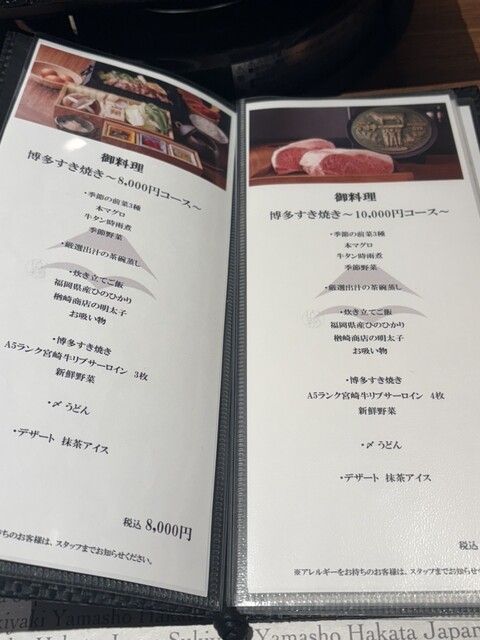 御料理
博多すき焼き～8,000円コース～
・季節の前菜3種
本マグロ
牛タン時雨煮
季節野菜
・厳選出汁の茶碗蒸し
・炊き立てご飯
福岡県産ひのひかり
楢崎商店の明太子
お吸い物
・博多すき焼き
A5ランク宮崎牛リブサーロイン 3枚
新鮮野菜
・〆 うどん
・デザート 抹茶アイス
税込 8,000円
持ちのお客様は、スタッフまでお知らせください。
御料理
博多すき焼き～10,000円コース～
・季節の前菜3種
本マグロ
牛タン時雨煮
季節野菜
・厳選出汁の茶碗蒸し
・炊き立てご飯
福岡県産ひのひかり
楢崎商店の明太子
お吸い物
・博多すき焼き
A5ランク宮崎牛リブサーロイン 4枚
新鮮野菜
・〆 うどん
・デザート 抹茶アイス
税込
※アレルギーをお持ちのお客様は、スタッフまでお知らせ
Sukiyaki Yamasho Hakata Japan